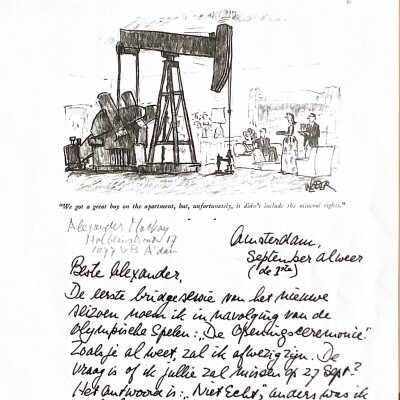 WEBER
"We got a great buy on the apartment, but, unfortunately, it didn't include the mineral rights."
Alexander
Holbeinstraat 17
1077 VB A'dam
Amsterdam,
September alweer
(de 3de)
Beste Alexander,
De eerste bridgesessie van het nieuwe
seizoen noem ik in navolging van de
Olympische Spelen: „De Openingsceremonie"
Zoals je al weet, zal ik afwezig zijn. De
vraag is of ik jullie zal missen op 27 Sept.?
Het antwoord is: „Niet Echt", anders was ik